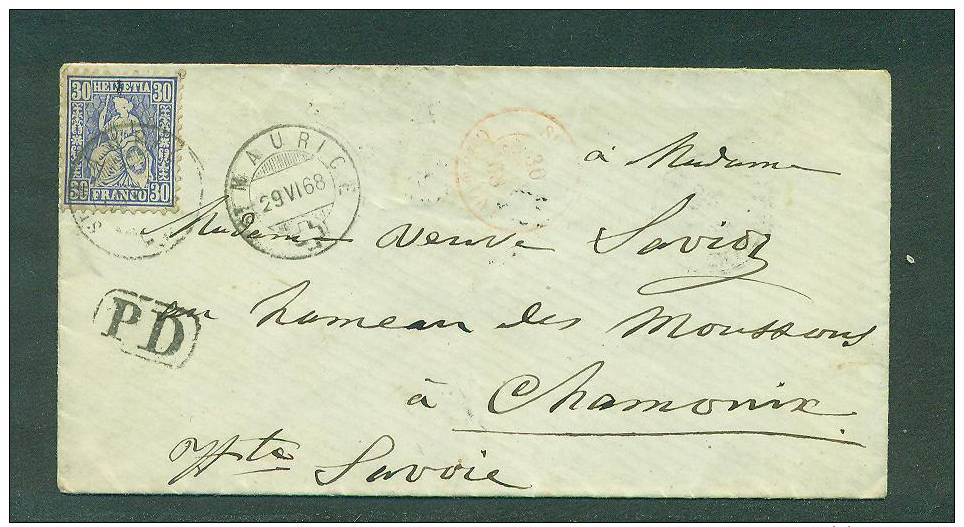 30 HELVETIA 30
30 FRANCO 30
ST MAURICE
29 VI 68
30
PD
à Madame
Madame veuve Savioz
au hameau des Moussons
à Chamonix
Hte Savoie